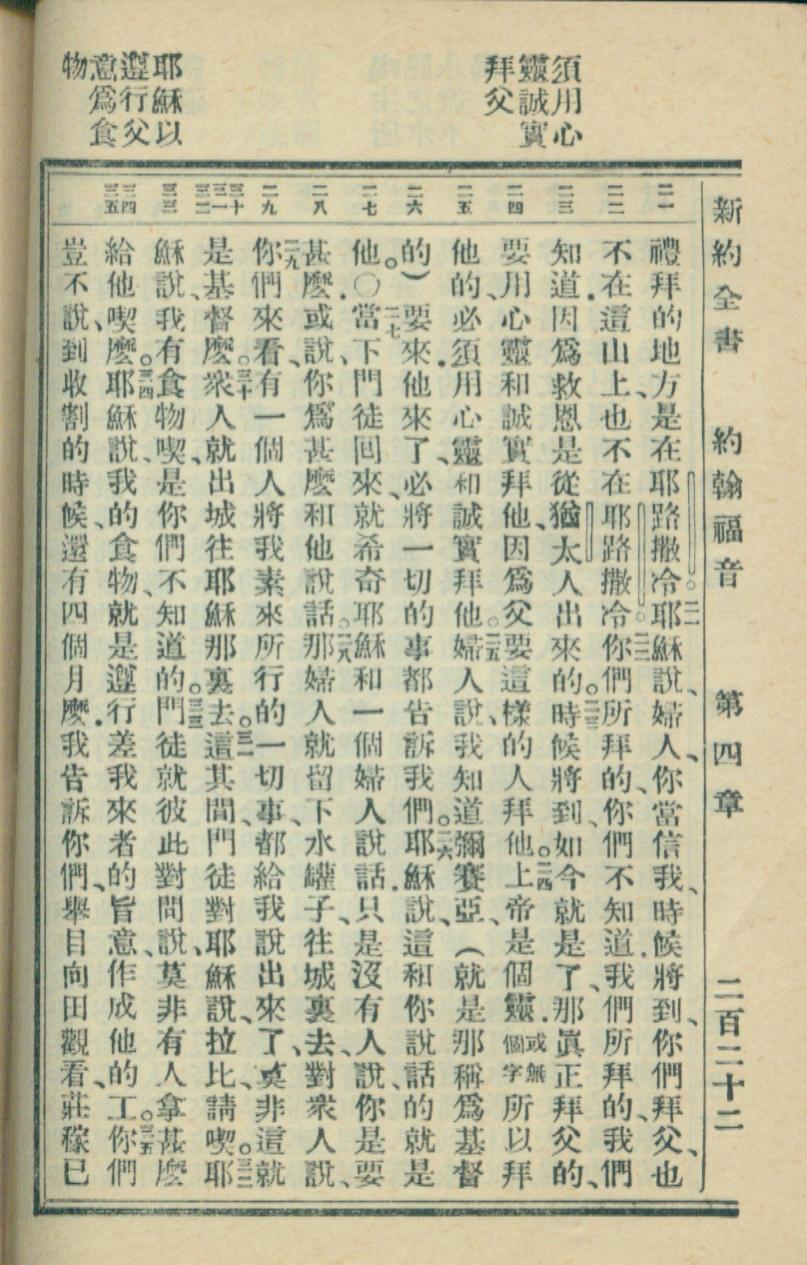 新約全書 約翰福音 第四章 二百二十二
須用心
靈誠實
拜父
耶穌以
遵行父
意爲食
物
二一
二二
二三
二四
二五
二六
二七
二八
二九
三十
三一
三二
三三
三四
三五
禮拜的地方、是在耶路撒冷。二一耶穌說、婦人、你當信我、時候將到、你們拜父、也
不在這山上、也不在耶路撒冷。二二你們所拜的、你們不知道.我們所拜的、我們
知道.因爲救恩是從猶太人出來的。二三時候將到、如今就是了、那眞正拜父的、
要用心靈和誠實拜他、因爲父要這樣的人拜他。二四上帝是個靈.或無個字所以拜
他的、必須用心靈和誠實拜他。二五婦人說、我知道彌賽亞、(就是那稱爲基督
的)要來.他來了、必將一切的事都告訴我們。二六耶穌說、這和你說話的就是
他。○二七當下門徒回來、就希奇耶穌和一個婦人說話.只是沒有人說、你是要
甚麼.或說、你爲甚麼和他說話。二八那婦人就留下水罐子、往城裏去、對衆人說、
二九你們來看、有一個人將我素來所行的一切事、都給我說出來了、莫非這就
是基督麼。三十衆人就出城、往耶穌那裏去。三一這其間、門徒對耶穌說、拉比、請喫。三二耶
穌說、我有食物喫、是你們不知道的。三三門徒就彼此對問說、莫非有人拿甚麼
給他喫麼。三四耶穌說、我的食物、就是遵行差我來者的旨意、作成他的工。三五你們
豈不說、到收割的時候、還有四個月麼.我告訴你們、舉目向田觀看、莊稼已